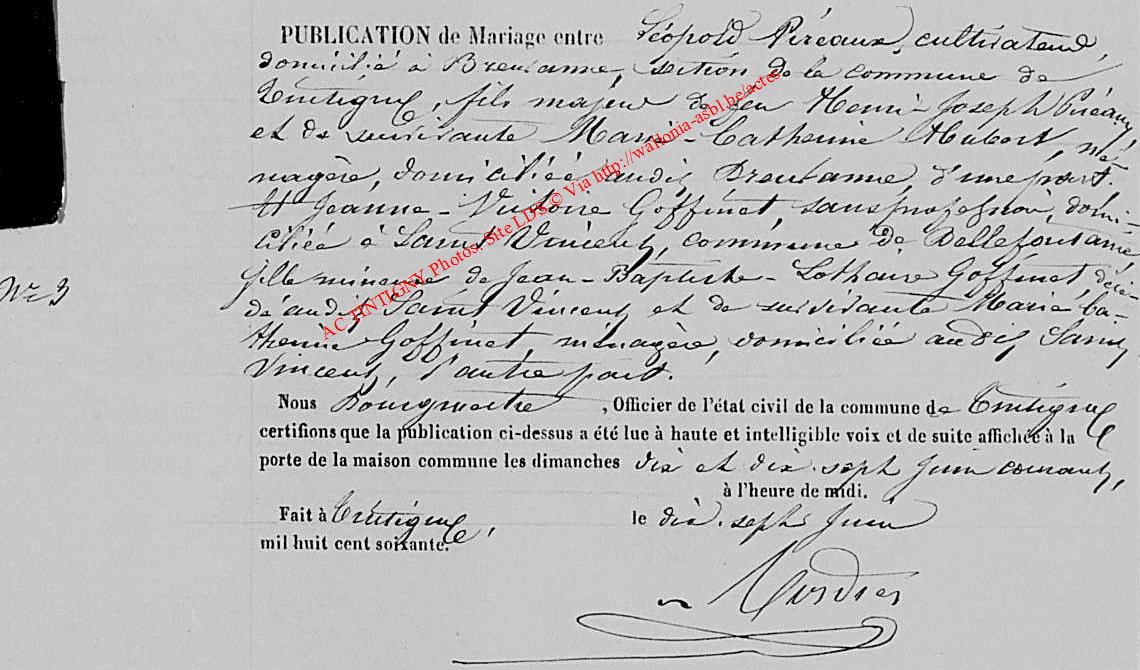 PUBLICATION de Mariage entre Léopold Piréaux, cultivateur,
domicilié à Breuvanne, section de la commune de
Tintigny, fils majeur de feu Henri-Joseph Piréaux
et de survivante Marie-Catherine Hubert, mé-
nagère, domiciliée audit Breuvanne, d'une part.
Et Jeanne-Victoire Goffinet, sans profession, domi-
ciliée à Saint Vincent, commune de Bellefontaine
fille mineure de Jean-Baptiste-Lothaire Goffinet, décé-
N° 3
dé audit Saint Vincent et de survivante Marie Ca-
therine Goffinet, ménagère, domiciliée audit Saint
Vincent, d'autre part.
AC TINTIGNY Photos: Site LDS © Via http://wallonia-asbl.be/actes
Nous Bourgmestre, Officier de l'état civil de la commune de Tintigny
certifions que la publication ci-dessus a été lue à haute et intelligible voix et de suite affichée à la
porte de la maison commune les dimanches dix et dix-sept Juin courant,
à l'heure de midi.
Fait à Tintigny, le dix-sept Juin
mil huit cent soixante.